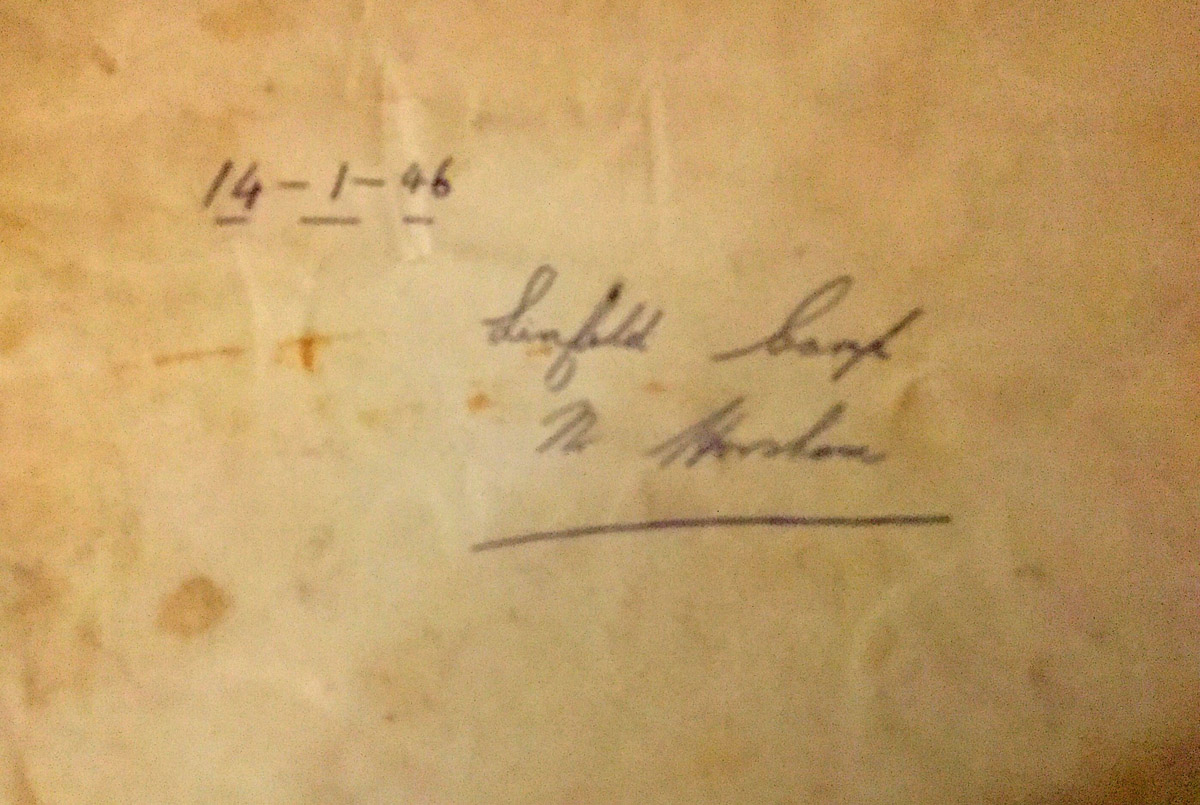 14-1-46
Linfield Camp
Nr Horsham